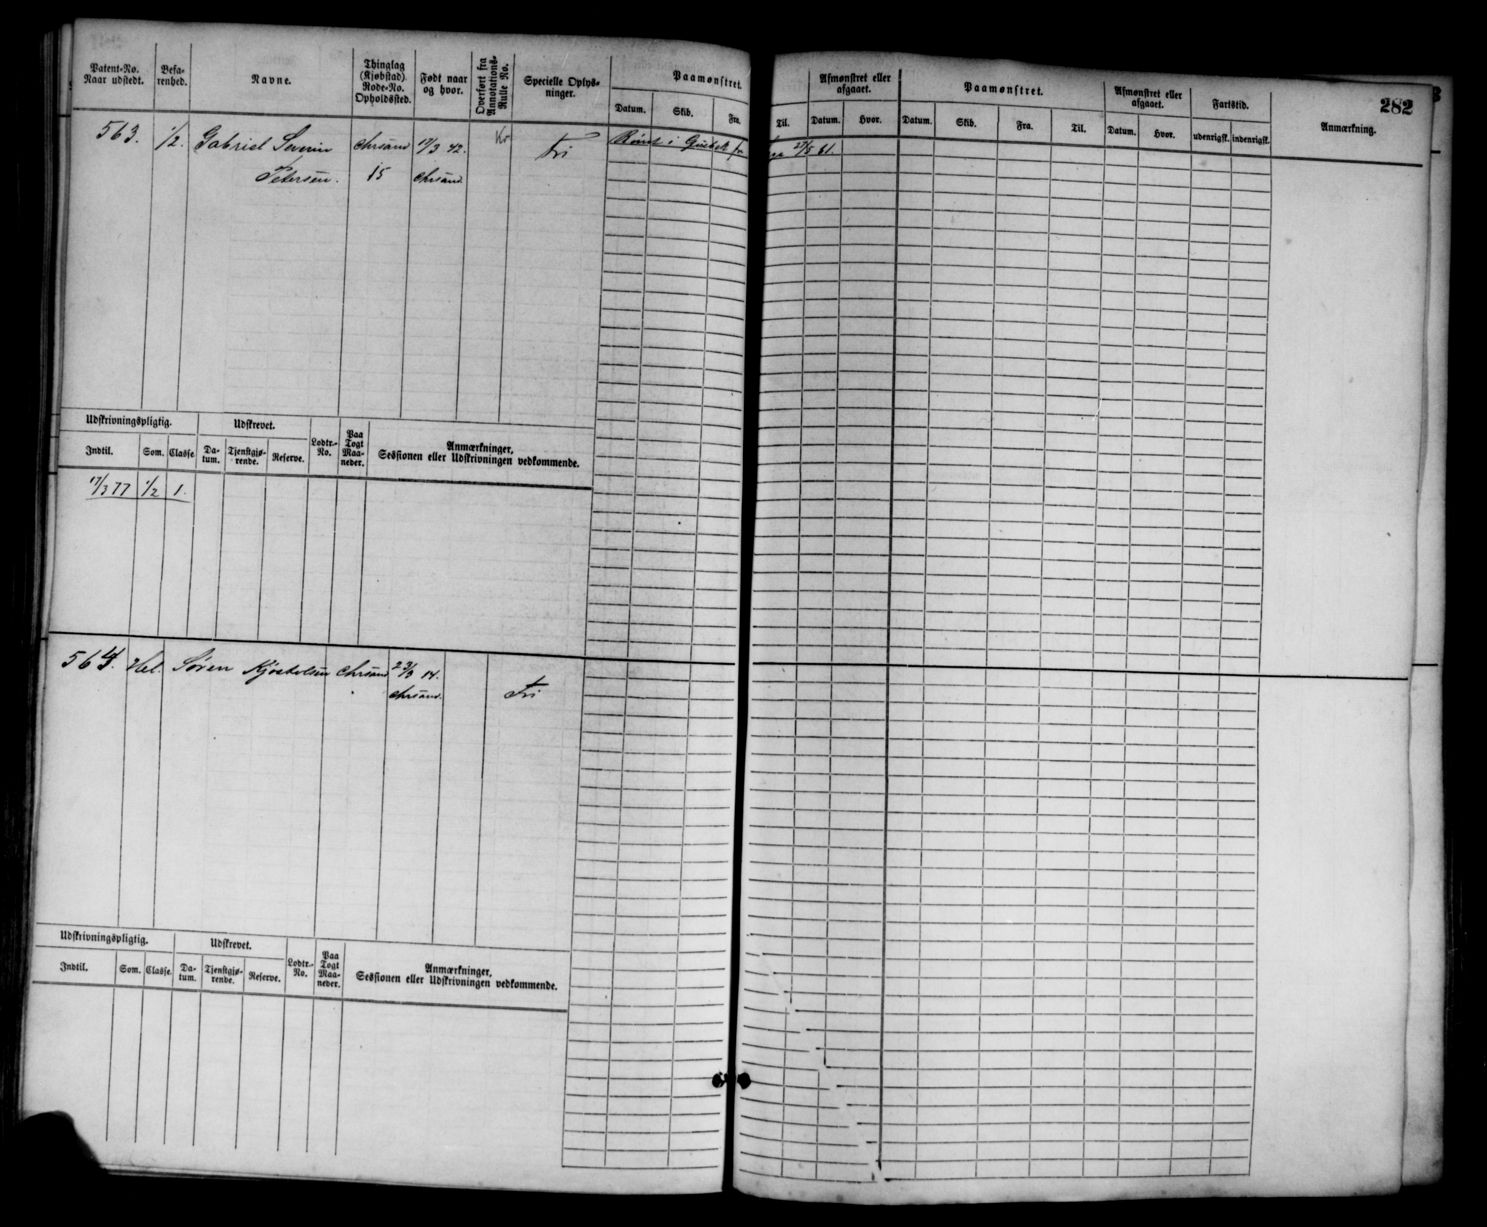 282
Patent-No. Naar udstedt.
Befarenhed.
Navne.
Thinglag (Kjøbstad) Rode-No. Opholdssted.
Født naar og hvor.
Overført fra Annotations-Rulle No.
Specielle Oplysninger.
Paamønstret.
Datum. Skib. Fra. Til.
Afmønstret eller afgaaet.
Datum. Hvor.
Paamønstret.
Datum. Skib. Fra. Til.
Afmønstret eller afgaaet.
Datum. Hvor.
Fartstid.
udenrigsk. indenrigsk.
Anmærkning.
563. 1/2. Gabriel Severin Chrsand 17/3 42. fri Rømt i 27/5 61.
Petersen. 15 Chrsand.
Udskrivningspligtig. Udskrevet. Lodtr.-No. Paa Togt Maaneder. Anmærkninger, Sessionen eller Udskrivningen vedkommende.
Indtil. Som. Classe. Datum. Tjenstgjørende. Reserve.
17/3 77 1/2 1.
564. Søren Chrsand 14.
Chrsand. Fri
Udskrivningspligtig. Udskrevet. Lodtr.-No. Paa Togt Maaneder. Anmærkninger, Sessionen eller Udskrivningen vedkommende.
Indtil. Som. Classe. Datum. Tjenstgjørende. Reserve.